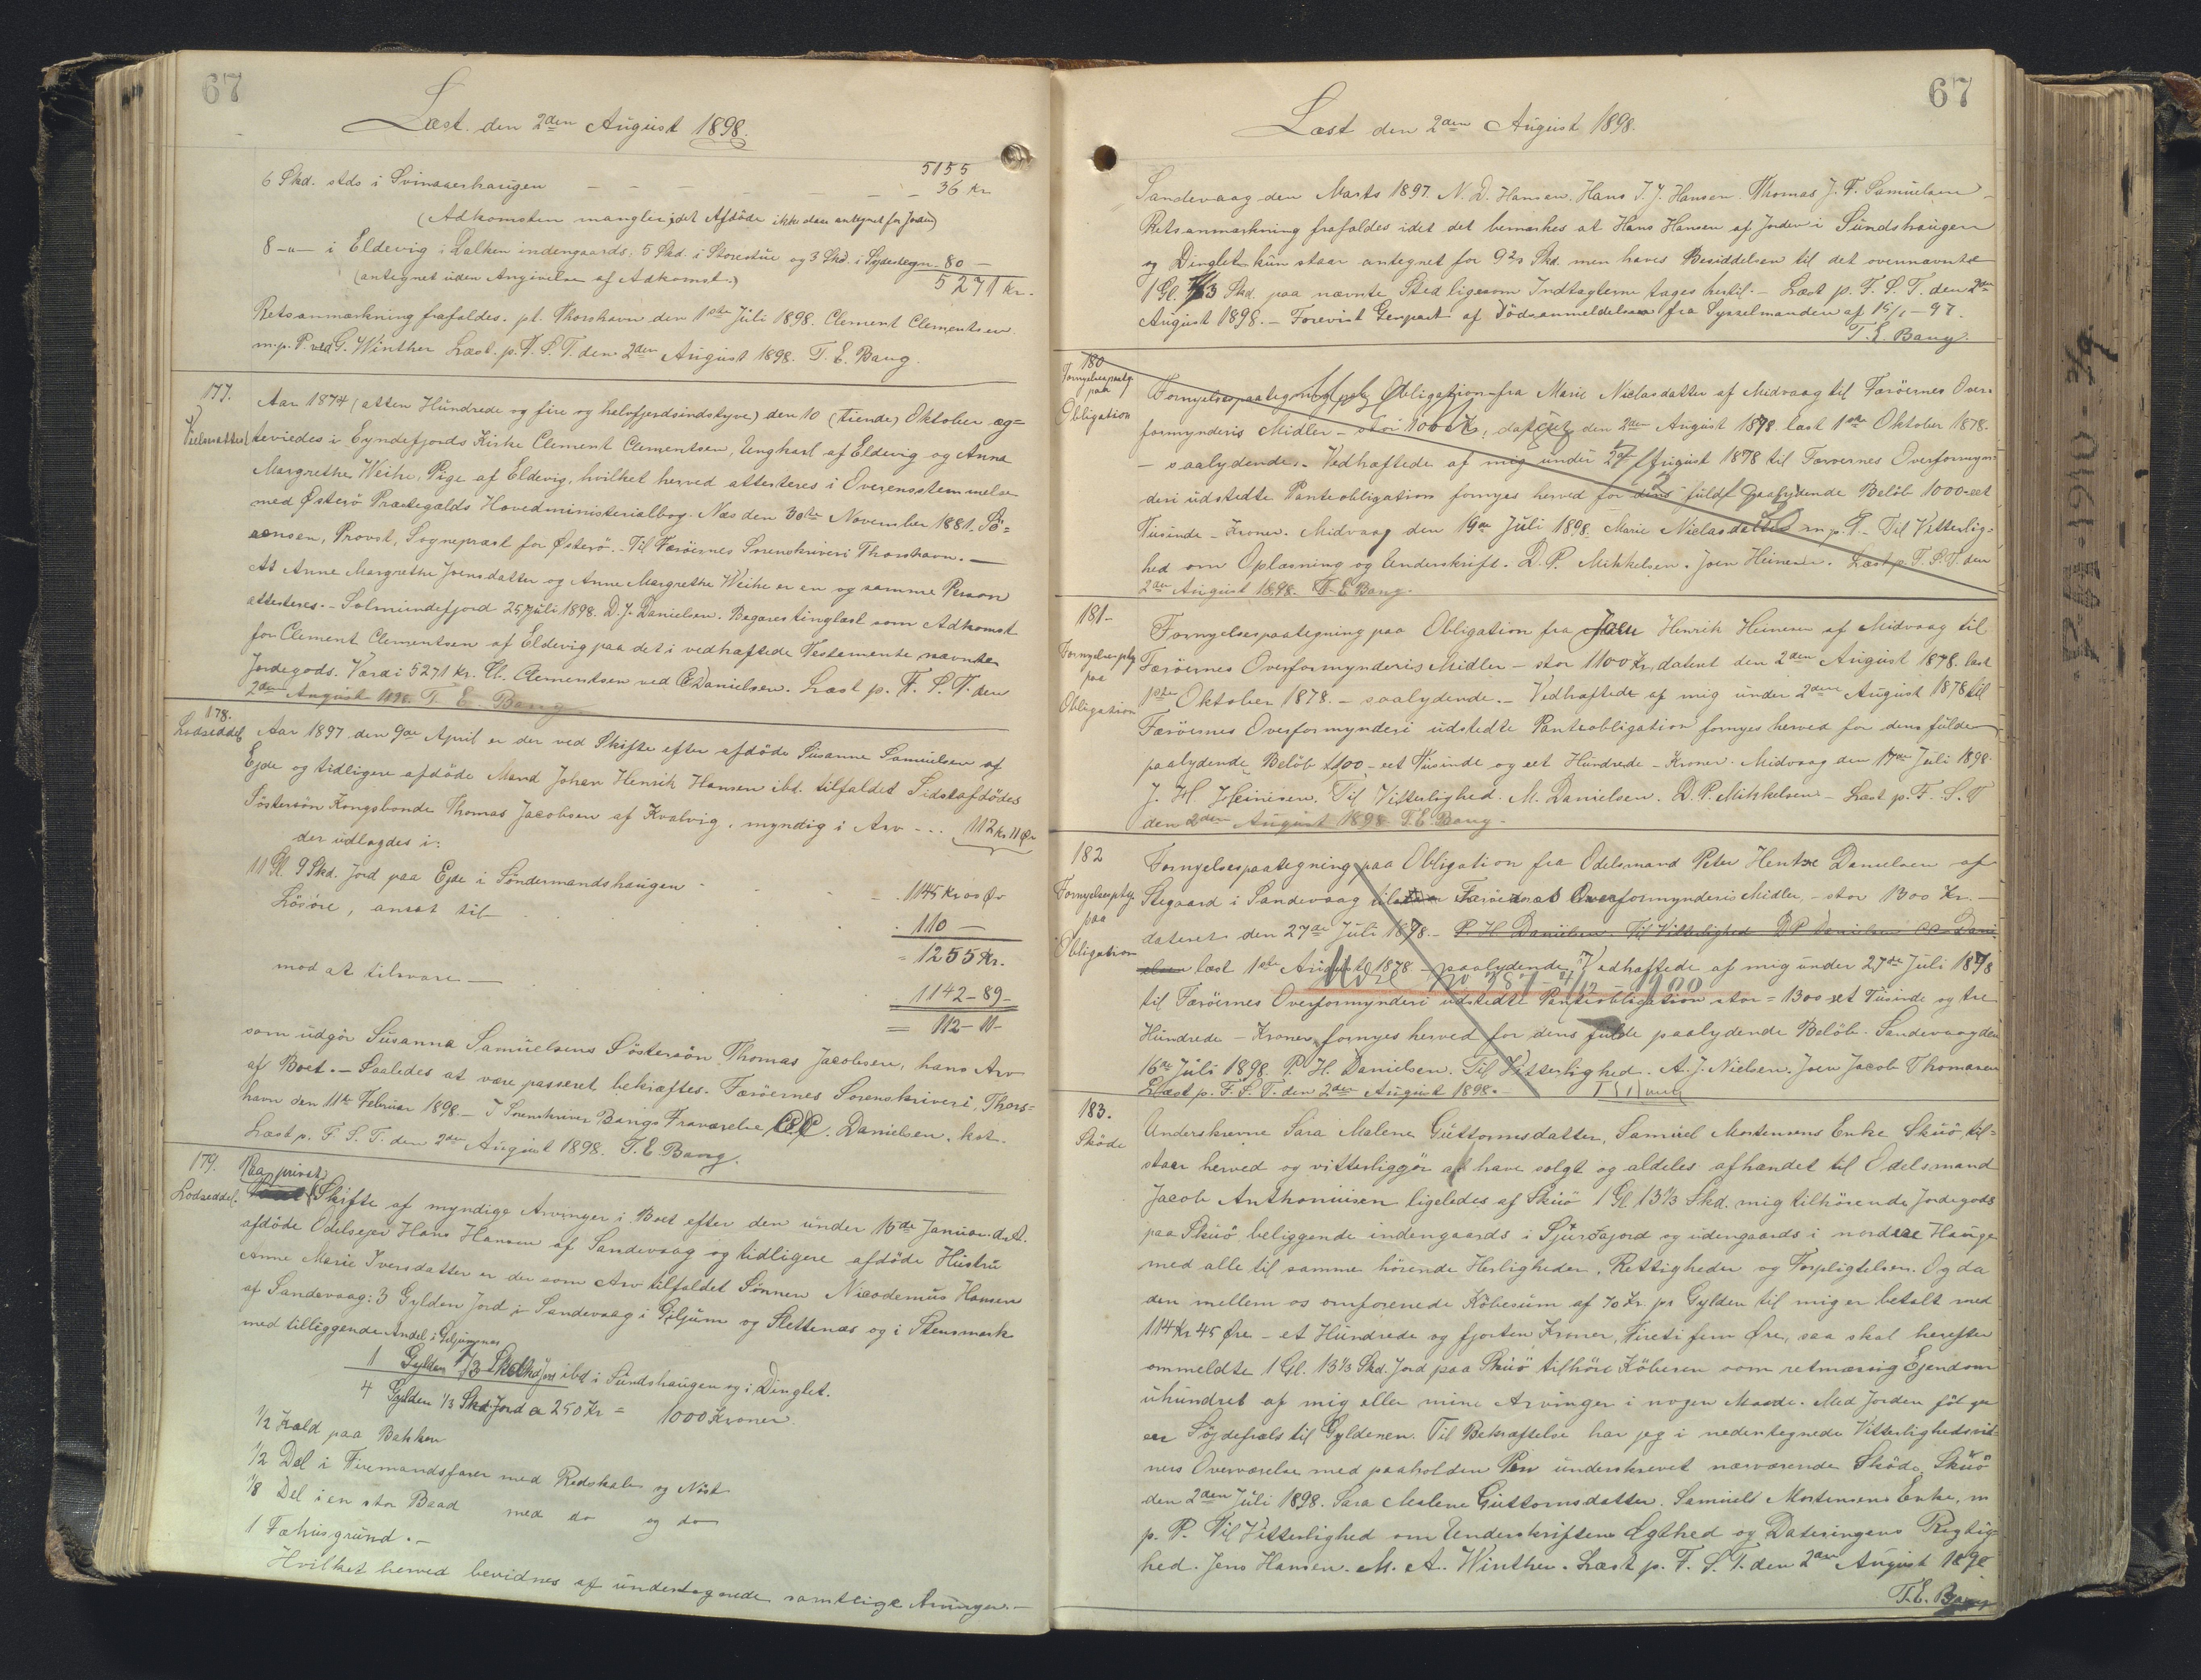 67
Læst den 2den August 1898.
5155
6 Skd. stds i Svinaaerhaugen — — — — — — 36 Kr
(Adkomsten mangler, idet Afdöde ikke staar antegnet for Jorden)
8 -"- i Eldevig i Lalken indengaards, 5 Skd. i Storestue og 3 Skd. i Sydertegn. 80 —
(antegnet uden Angivelse af Adkomst.)
5271 Kr.
Retsanmærkning frafaldes. pt. Thorshavn den 1ste Juli 1898. Clement Clementsen
m.p. P. ved G. Winther Læst. p. F. S. T. den 2den August 1898. T. E. Bang.
177.
Vielsesattest
Aar 1874 (atten Hundrede og fire og halvfjerdsindstyve) den 10 (tiende) Oktober æg=
teviedes i Eyndefjords Kirke Clement Clementsen, Ungkarl af Eldevig og Anna
Margrethe Weihe, Pige af Eldevig, hvilket herved attesteres i Overensstemmelse
med Østerö Præstegælds Hovedministerialbog. Næs den 30te November 1881. Sö=
rensen, Provst, Sognepræst for Österö. - Til Færöernes Sorenskriveri Thorshavn. —
At Anne Margrethe Joensdatter og Anne Margrethe Weihe er en og samme Person
attesteres. - Solmundefjord 25 Juli 1898. D. J. Danielsen. Begæres tinglæst som Adkomst
for Clement Clementsen af Eldevig paa det i vedhæftede Testamente nævnte
Jordegods. Værdi 5271 Kr. Cl. Clementsen ved C. Danielsen. Læst p. F. S. T. den
2den August 1898. T. E. Bang.
178.
Lodseddel
Aar 1897 den 9de April er der ved Skifte efter afdöde Susanne Samuelsen af
Ejde og tidligere afdöde Mand Johan Henrik Hansen ibd. tilfaldet Sidstafdödes
Söstersön Kongsbonde Thomas Jacobsen af Kvalvig, myndig i Arv - - - 112 Kr 11 Ør
der udlagdes i:
11 Gl 9 Skd. Jord paa Ejde i Söndermandshaugen - - - = 1145 Kr 00 Ør
Lösöre, ansat til - - - 110 —
= 1255 Kr.
mod at tilsvare — 1142 - 89 -
= 112 - 11 -
som udgör Susanna Samuelsens Söstersön Thomas Jacobsen, hans Arv
af Boet. - Saaledes at være passeret bekræftes. Færöernes Sorenskriveri, Thors=
havn den 11te Februar 1898. - I Sorenskriver Bangs Fraværelse C. Danielsen. kst.
Læst p. F. S. T. den 2den August 1898. T. E. Bang.
179.
Lodseddel.
Paa privat
Skifte af myndige Arvinger i Boet efter den under 15de Januar d. A.
afdöde Odelsejer Hans Hansen af Sandevaag og tidligere afdöde Hustru
Anne Marie Iversdatter er der som Arv tilfaldet Sönnen Nicodemus Hansen
af Sandevaag: 3 Gylden Jord i Sandevaag i Giljum og Slettenæs og i Stensmark
med tilliggende Andel i Giljumnæs
1 Gylden 1/3 Skd Jord ibd i Sundshaugen og i Dinglet.
4 Gylden 1/3 Skd Jord a 250 Kr = 1000 Kroner.
1/2 Hæld paa Bakken
1/2 Del i Firemandsfarer med Redskaber og Nöst
1/8 Del i en stor Baad med do og do
1 Fæhusgrund. -
Hvilket herved bevidnes af undertegnede samtlige Arvinger. -
67
Læst den 2den August 1898.
Sandevaag den Marts 1897. N. D. Hansen. Hans J. J. Hansen. Thomas J. F. Samuelsen -
Retsanmærkning frafaldes idet det bemærkes at Hans Hansen af Jorden i Sundshaugen
og Dinglet kun staar antegnet for 9 2/3 Skd. men haves Besiddelsen til det ovennævnte
1 Gl. 1/3 Skd. paa nævnte Sted ligesom Indtægterne tages hertil. - Læst p. F. S. T. den 2den
August 1898. - Forevist Genpart af Dödsanmeldelsen fra Sysselmanden af 15/1 - 97.
T. E. Bang.
180
Fornyelsespaateg.
paa
Obligation
Fornyelsespaategning paa Obligation fra Marie Niclasdatter af Midvaag til Færöernes Over=
formynderis Midler - stor 1000 Kr, dateret den 2den August 1878. læst 1ste Oktober 1878.
- saalydende. - Vedhæftede af mig under 2den August 1878 til Færöernes Overformyn=
deri udstedte Panteobligation fornyes herved for dens fulde paalydende Belöb 1000 - eet
Tusinde - Kroner. Midvaag den 19de Juli 1898. Marie Niclasdatter m. p. P. - Til Vitterlig=
hed om Oplæsning og Underskrift. D. P. Mikkelsen. Joen Heinesen. Læst p. F. S. T. den
2den August 1898. T. E. Bang.
181 -
Fornyelsesptg.
paa
Obligation
Fornyelsespaategning paa Obligation fra Joen Henrik Heinesen af Midvaag til
Færöernes Overformynderis Midler - stor 1100 Kr, dateret den 2den August 1878. læst
1ste Oktober 1878. - saalydende. - Vedhæftede af mig under 2den August 1878 til
Færöernes Overformynderi udstedte Panteobligation fornyes herved for dens fulde
paalydende Belöb 1100 - eet Tusinde og eet Hundrede - Kroner. Midvaag den 17de Juli 1898.
J. H. Heinesen. Til Vitterlighed. M. Danielsen. D. P. Mikkelsen - Læst p. F. S. T
den 2den August 1898. T. E. Bang.
182
Fornyelsesptg.
paa
Obligation
Fornyelsespaategning paa Obligation fra Odelsmand Peter Hentze Danielsen af
Stegaard i Sandevaag til Færöernes Overformynderis Midler, - stor 1300 Kr. -
dateret den 27de Juli 1878. - P. H. Danielsen. Til Vitterlighed
læst 1ste August 1878 - saalydende: Vedhæftede af mig under 27de Juli 1878
til Færöernes Overformynderi udstedte Panteobligation stor = 1300 - eet Tusinde og tre
Hundrede - Kroner, fornyes herved for dens fulde paalydende Belöb. Sandevaag den
16de Juli 1898. P. H. Danielsen. Til Vitterlighed. A. J. Nielsen. Joen Jacob Thomasen
Læst p. F. S. T. den 2den August 1898. - T. E. Bang
183.
Sköde
Underskrevne Sara Malene Guttormsdatter, Samuel Mortensens Enke Skuö, til=
staar herved og vitterliggör at have solgt og aldeles afhændet til Odelsmand
Jacob Anthoniusen ligeledes af Skuö 1 Gl. 13 1/3 Skd. mig tilhörende Jordegods
paa Skuö beliggende indengaards i Sjurdajord og udengaards i nordre Hauge
med alle til samme hörende Herligheder, Rettigheder og Forpligtelser. Og da
den mellem os omforenede Köbesum af 70 Kr pr Gylden til mig er betalt med
114 Kr 45 Øre - et Hundrede og fjorten Kroner, Fireti fem Øre, saa skal herefter
ommeldte 1 Gl. 13 1/3 Skd. Jord paa Skuö tilhöre Köberen som retmæssig Ejendom
uhindret af mig eller mine Arvinger i nogen Maade. Med Jorden fölger
er Söjdefæls til Gyldenen. Til Bekræftelse har jeg i nedentegnede Vitterlighedsvid
ners Overværelse med paaholden Pen underskrevet nærværende Sköde. Skuö
den 2den Juli 1898. Sara Malene Guttormsdatter. Samuel Mortensens Enke, m
p. P. Til Vitterlighed om Underskriftens Ægthed og Dateringens Rigtig
hed. Jens Hansen. M. A. Winther. Læst p. F. S. T. den 2den August 1898
T. E. Bang